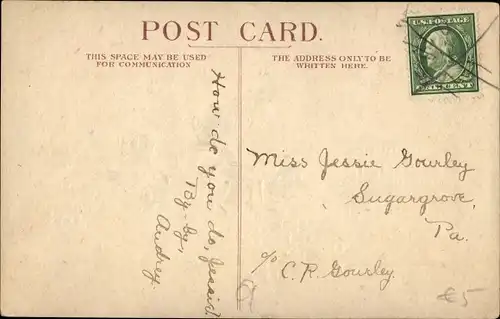 POST CARD.
THIS SPACE MAY BE USED
FOR COMMUNICATION
THE ADDRESS ONLY TO BE
WRITTEN HERE.
U.S. POSTAGE
CENT
How do you do, Jessie?
By-by,
Audrey.
Miss Jessie Gourley
Sugargrove,
Pa.
c/o C. R. Gourley.
€5